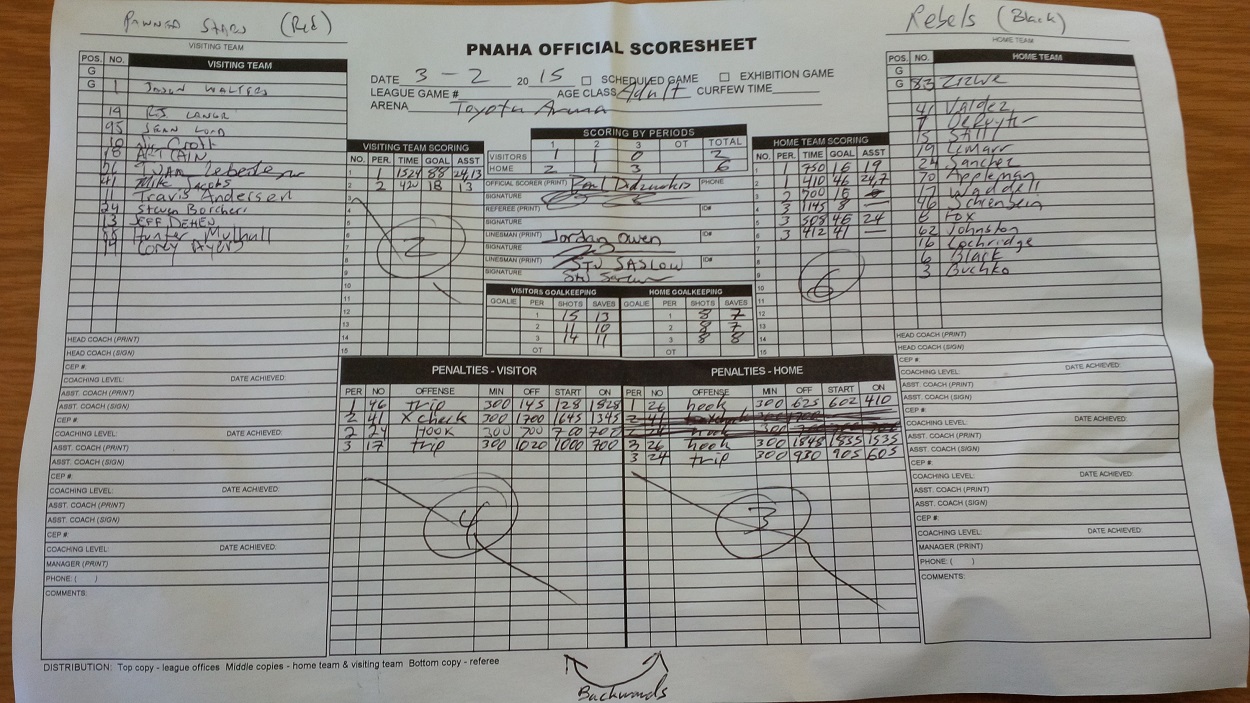 (Red)
VISITING TEAM
Rebels (Black)
HOME TEAM
PNAHA OFFICIAL SCORESHEET
DATE 3-2 2015 SCHEDULED GAME EXHIBITION GAME
LEAGUE GAME # AGE CLASS Adult CURFEW TIME
ARENA Toyota Arena
POS. NO. VISITING TEAM
G
G 1 Jason Walters
19 RJ Langr
95 Sean Lord
Croft
18 Cain
Lebede
41 Mike Jacobs
Travis Andersen
24 Steven Borchers
13 Jeff Dehen
Hunter Mulhall
Corey Ayers
HEAD COACH (PRINT)
HEAD COACH (SIGN)
CEP #:
COACHING LEVEL: DATE ACHIEVED:
ASST. COACH (PRINT)
ASST. COACH (SIGN)
CEP #:
COACHING LEVEL: DATE ACHIEVED:
ASST. COACH (PRINT)
ASST. COACH (SIGN)
CEP #:
COACHING LEVEL: DATE ACHIEVED:
ASST. COACH (PRINT)
ASST. COACH (SIGN)
CEP #:
COACHING LEVEL: DATE ACHIEVED:
MANAGER (PRINT)
PHONE: ( )
COMMENTS:
VISITING TEAM SCORING
NO. PER. TIME GOAL ASST
1 1 1524 88 24,13
2 2 420 18 13
3
4
5
6
7
8
9
10
11
12
13
14
15
2
SCORING BY PERIODS
1 2 3 OT TOTAL
VISITORS 1 1 0 2
HOME 2 1 3 6
OFFICIAL SCORER (PRINT) Paul PHONE
SIGNATURE
REFEREE (PRINT) ID#
SIGNATURE
LINESMAN (PRINT) Jordan Owen ID#
SIGNATURE
LINESMAN (PRINT) STU SASLOW ID#
SIGNATURE Stu
VISITORS GOALKEEPING HOME GOALKEEPING
GOALIE PER SHOTS SAVES GOALIE PER SHOTS SAVES
1 15 13 1 8 7
2 11 10 2 8 7
3 14 11 3 8 8
OT OT
HOME TEAM SCORING
NO. PER. TIME GOAL ASST
1 1 750 16 19
2 1 410 46 24,7
3 2 700 15
4 3 1145 8 —
5 3 508 46 24
6 3 412 41 —
7
8
9
10
11
12
13
14
15
6
POS. NO. HOME TEAM
G
G 83 Zizwe
41 Valdez
7 DeRuyter
15 Still
19 Lamarr
24 Sanchez
70 Appleman
17 Waddell
46 Schienbein
8 Fox
62 Johnston
16 Lochridge
6 Black
3 Buchko
HEAD COACH (PRINT)
HEAD COACH (SIGN)
CEP #:
COACHING LEVEL: DATE ACHIEVED:
ASST. COACH (PRINT)
ASST. COACH (SIGN)
CEP #:
COACHING LEVEL: DATE ACHIEVED:
ASST. COACH (PRINT)
ASST. COACH (SIGN)
CEP #:
COACHING LEVEL: DATE ACHIEVED:
ASST. COACH (PRINT)
ASST. COACH (SIGN)
CEP #:
COACHING LEVEL: DATE ACHIEVED:
MANAGER (PRINT)
PHONE: ( )
COMMENTS:
PENALTIES - VISITOR
PER NO OFFENSE MIN OFF START ON
1 46 trip 300 145 128 1828
2 41 X check 300 1700 1645 1345
2 24 Hook 300 700 700
3 17 trip 300 1020 1000 700
4
PENALTIES - HOME
PER NO OFFENSE MIN OFF START ON
1 26 hook 300 625 602 410
2 26 hook 300 1848 1835 1535
3 24 trip 300 930 905 605
3
DISTRIBUTION: Top copy - league offices Middle copies - home team & visiting team Bottom copy - referee
Backwards